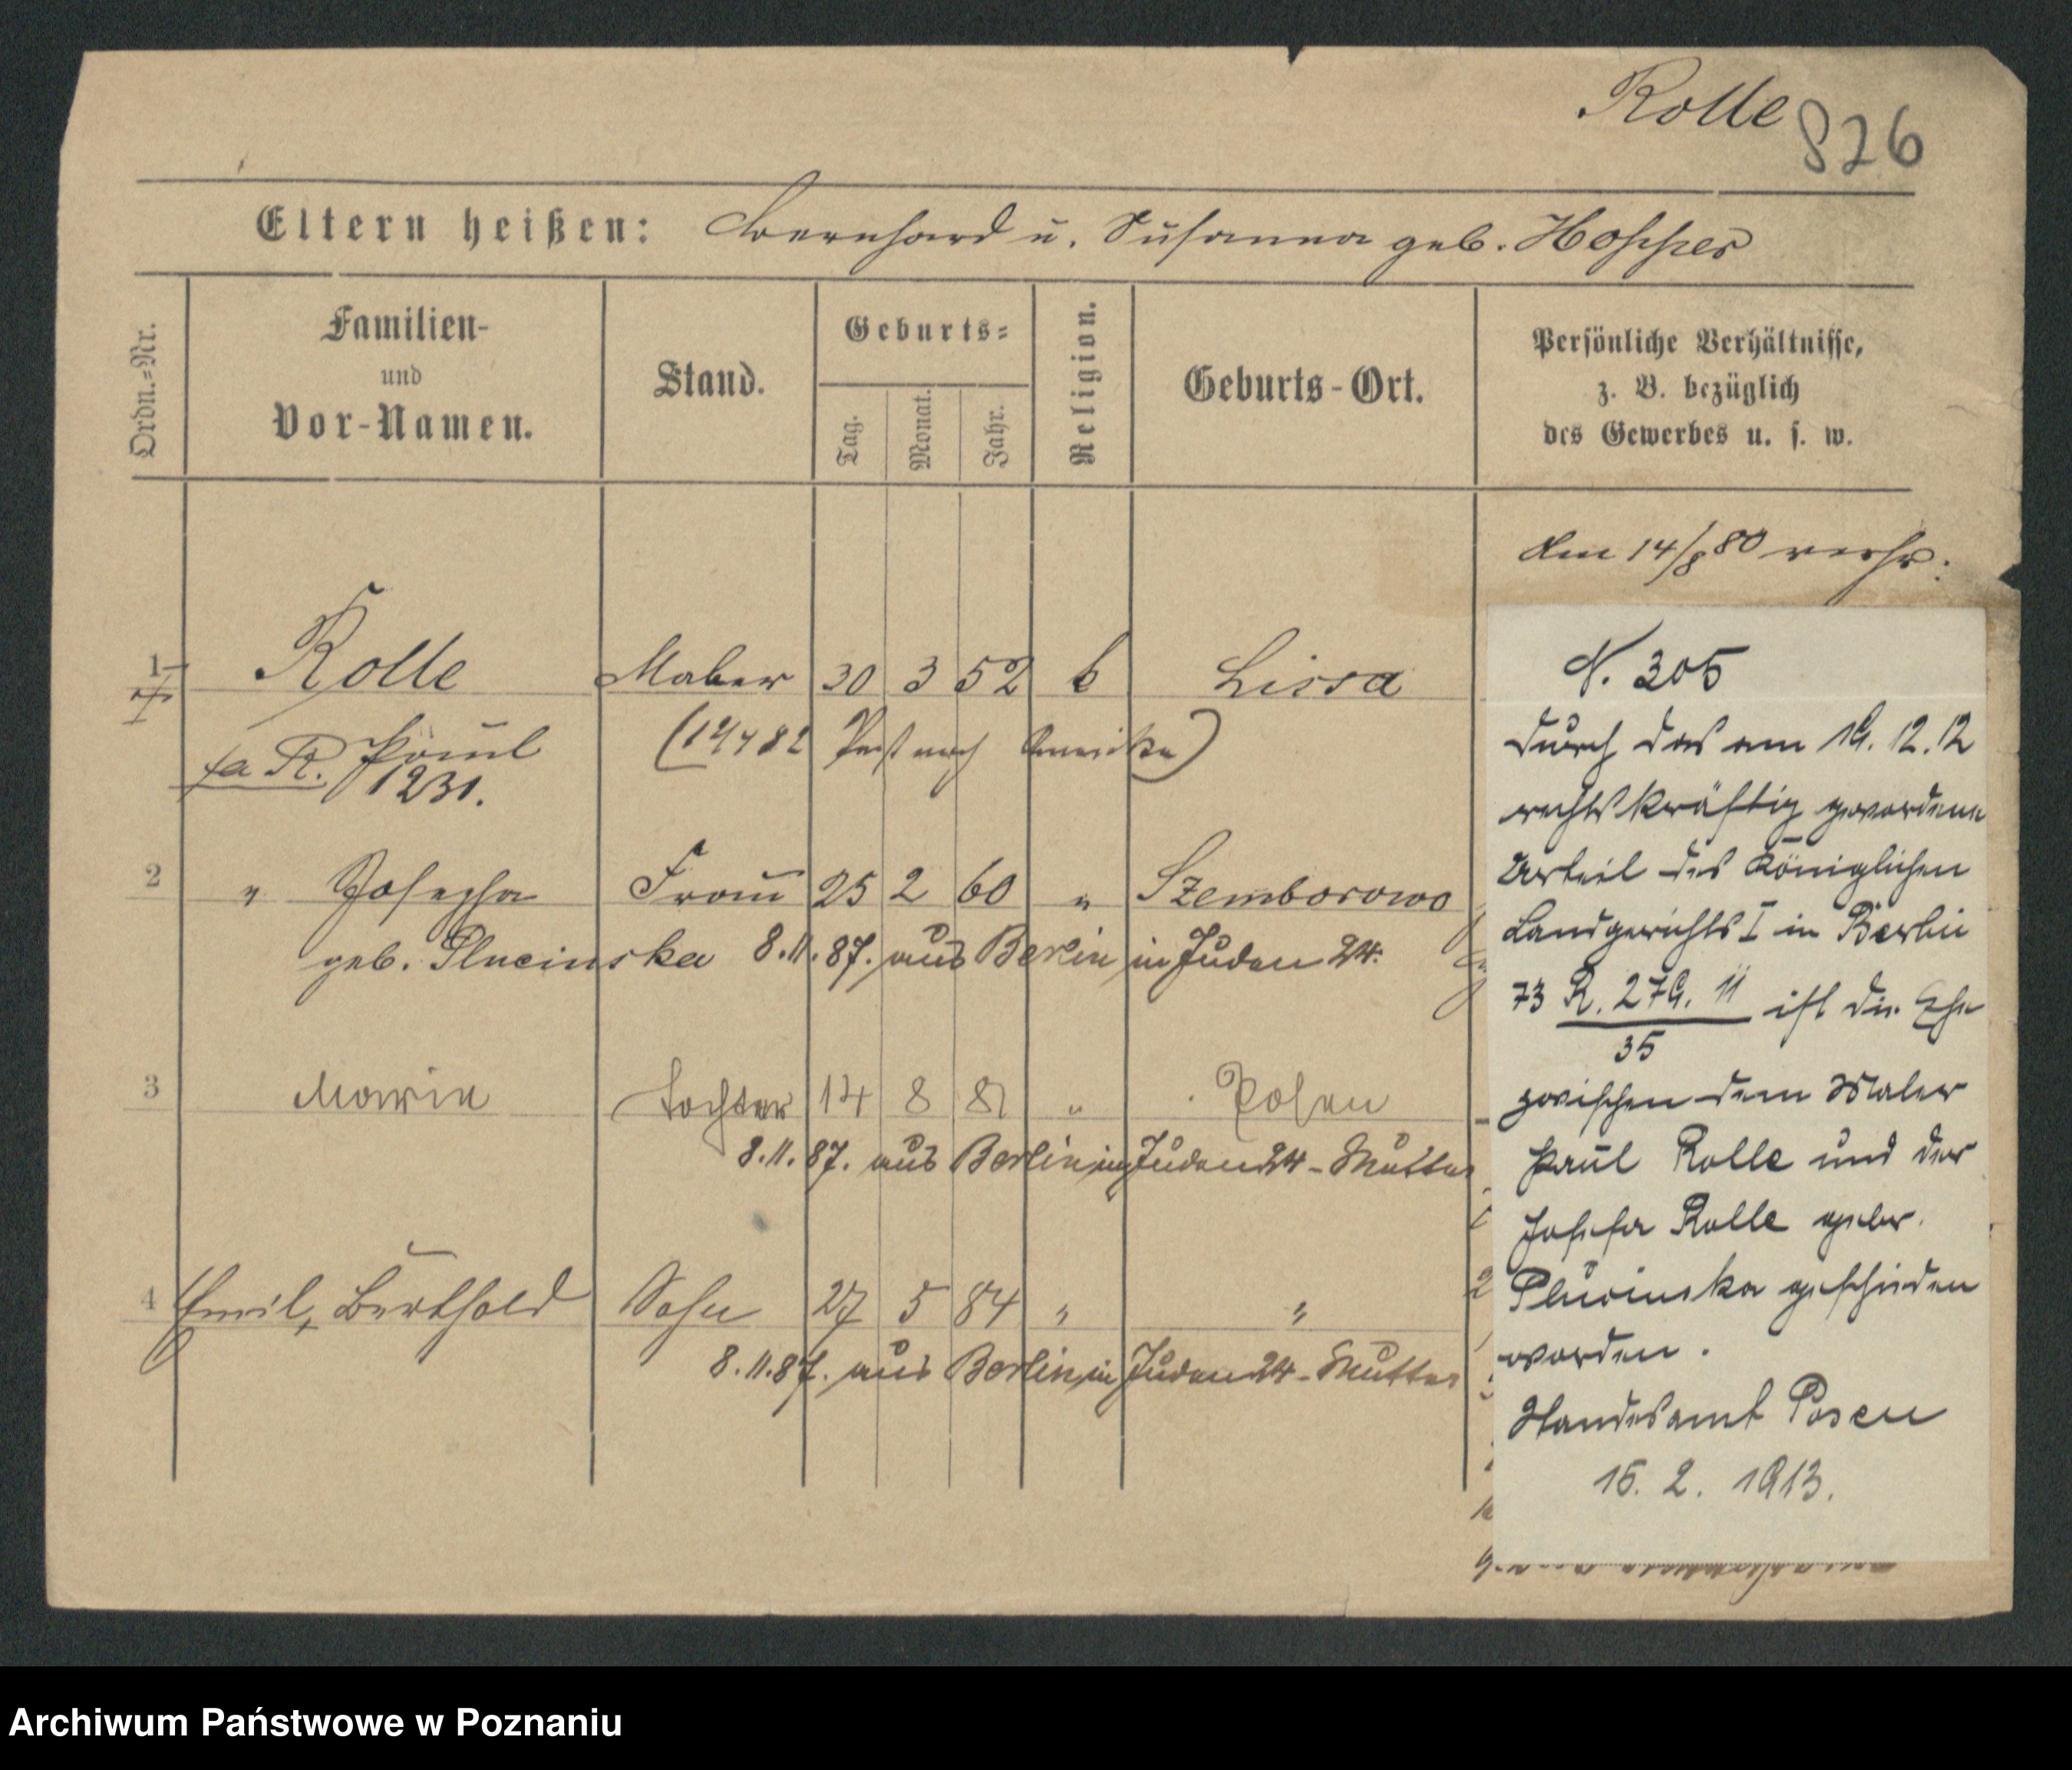 Rolle
826
Eltern heißen: Bernhard u. Susanna geb. Hoffher
Ordn.-Nr.
Familien-
und
Vor-Namen.
Stand.
Geburts-
Tag.
Monat.
Jahr.
Religion.
Geburts-Ort.
Persönliche Verhältnisse,
z. B. bezüglich
des Gewerbes u. s. w.
Am 14/8 80 verh.
1 Rolle Maler 30 3 52 k Lissa
Paul nach Amerika)
1231.
2 " Josepha Frau 25 2 60 " Szemborowo
geb. Plucinska 8.11.87. aus Berlin in Juden 24.
3 Marie Tochter 14 8 81 " Posen
8.11.87. aus Berlin in Juden 24 - Mutter
4 Emil, Berthold Sohn 27 5 84 " "
8.11.87. aus Berlin in Juden 24 - Mutter
N. 305
Durch das am 19. 12. 12
rechtskräftig gewordene
Urteil des Königlichen
Landgerichts I in Berlin
73 R. 279. 11 ist die Ehe
35
zwischen dem Maler
Paul Rolle und der
Josefa Rolle gebor.
Plucinska geschieden
worden.
Standesamt Posen
15. 2. 1913.
Archiwum Państwowe w Poznaniu